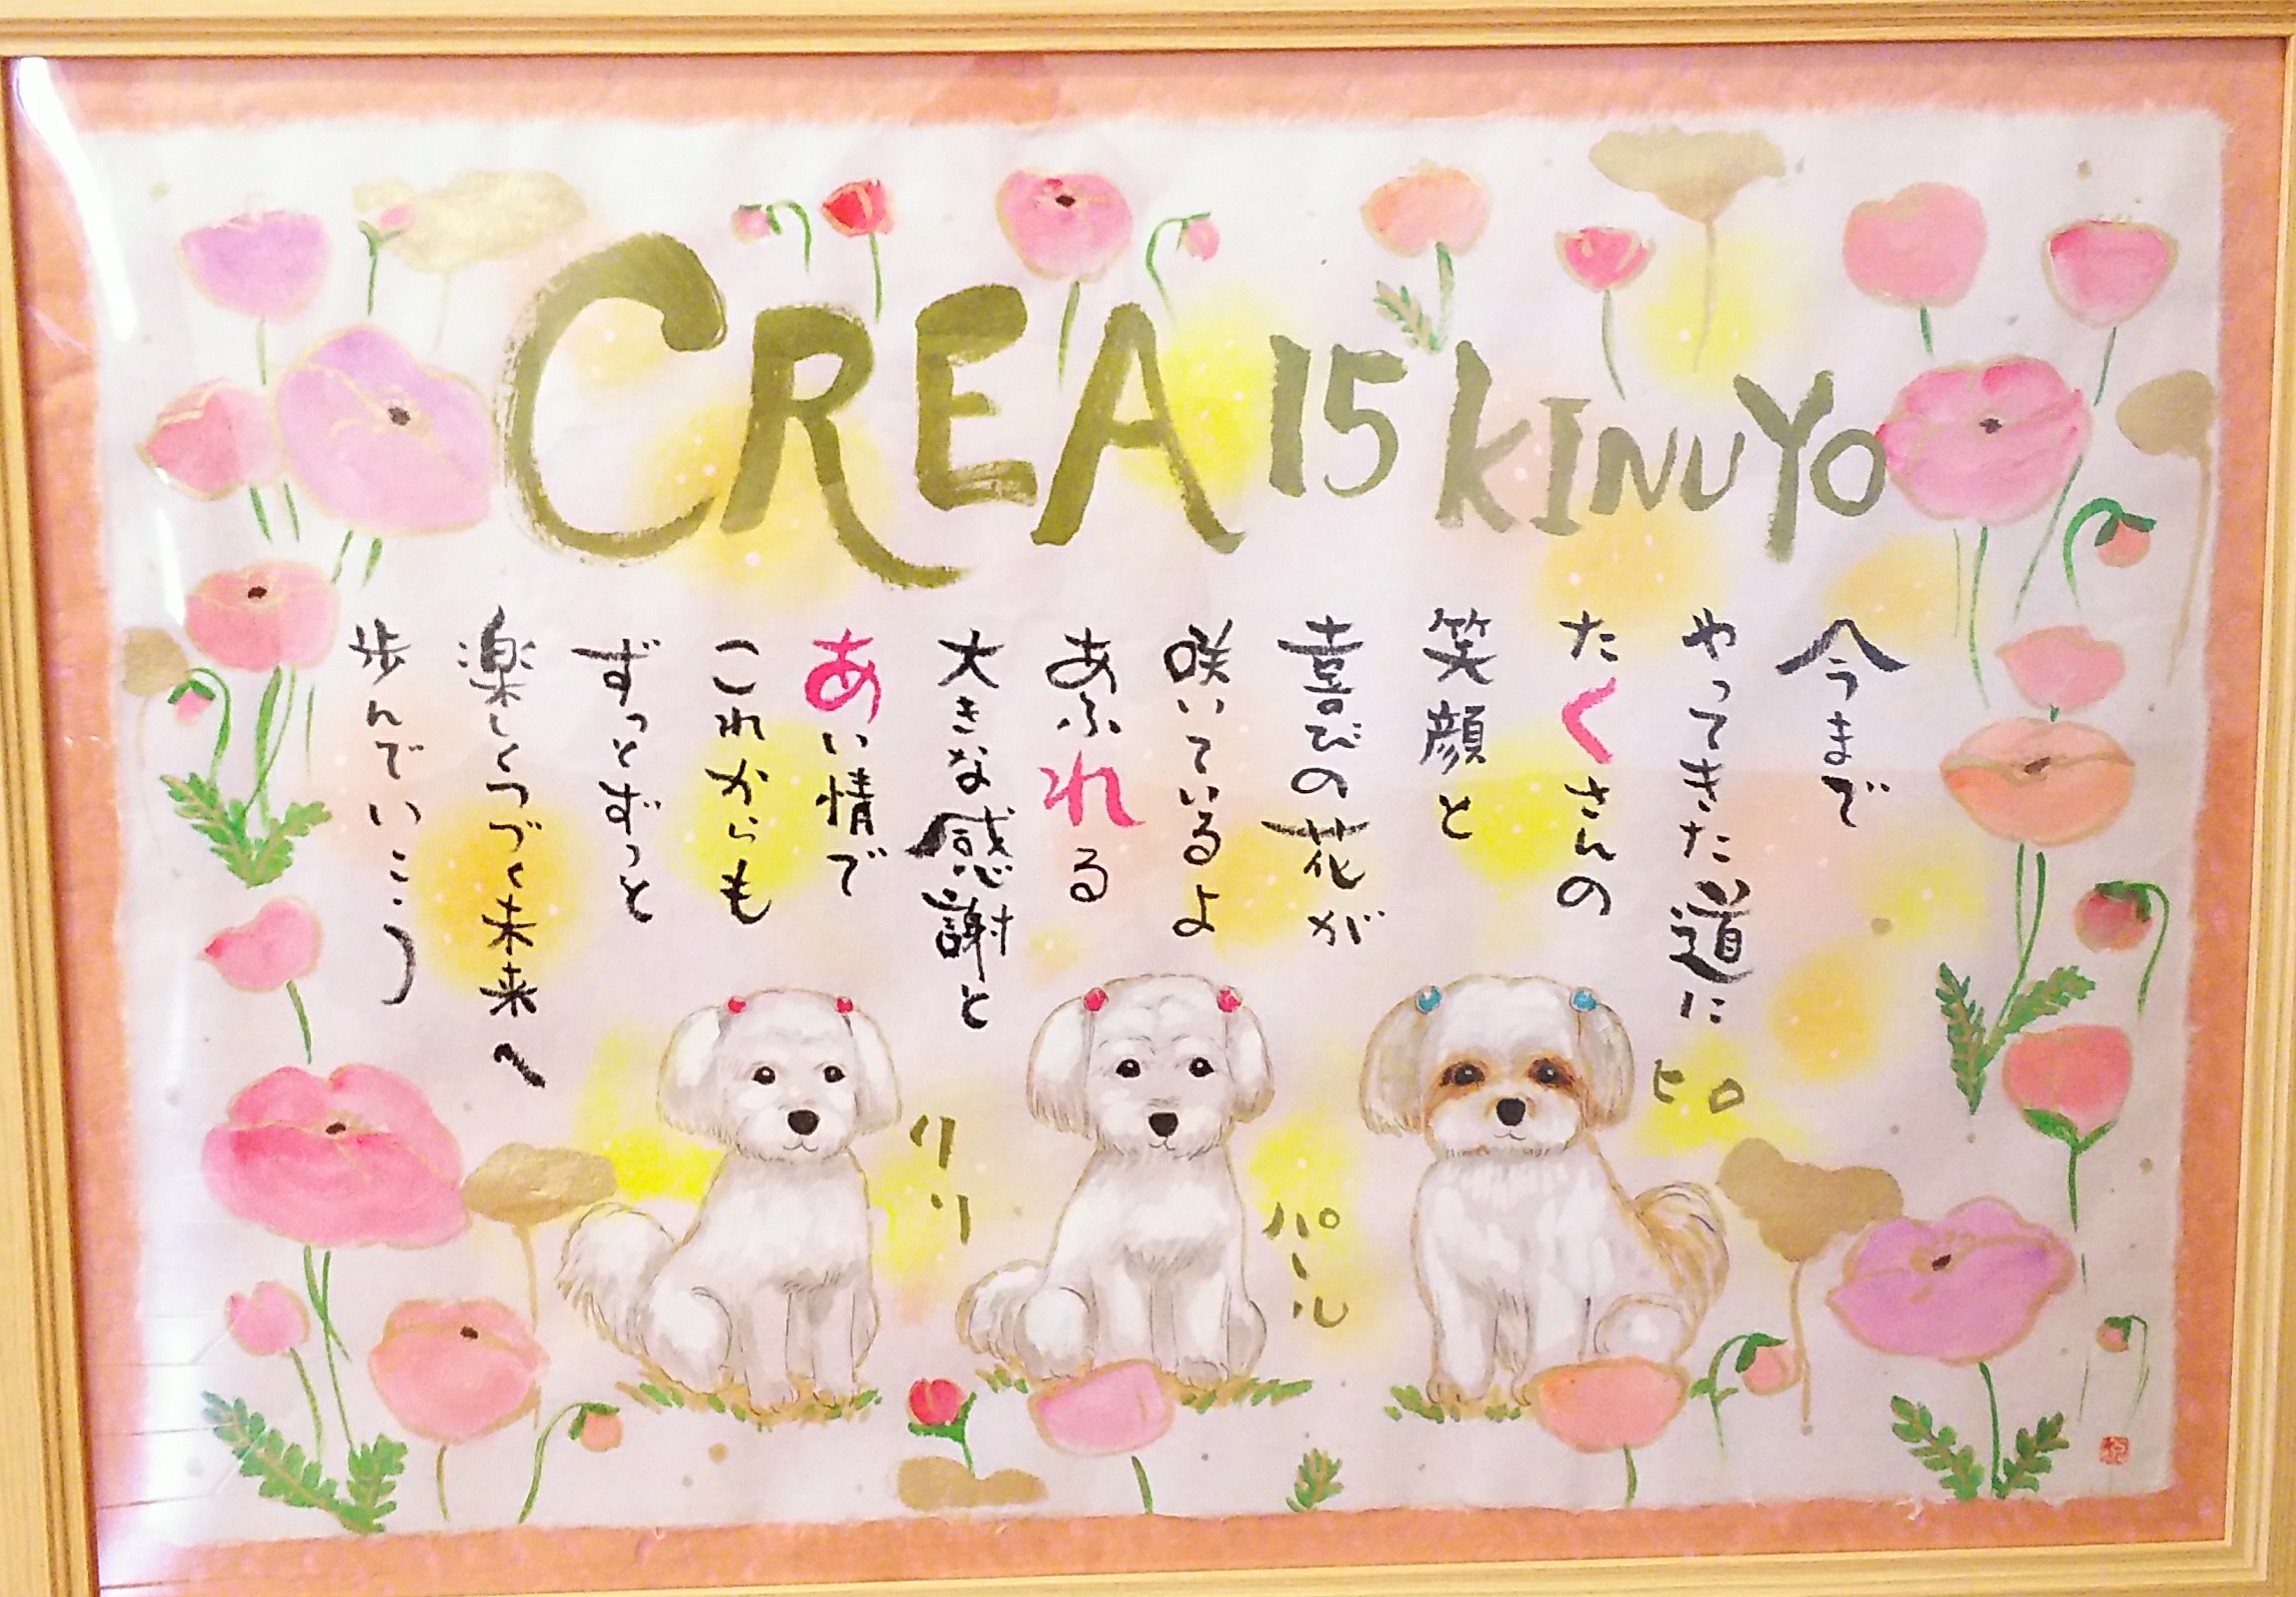 CREA 15 KINUYO
今まで
やってきた道に
たくさんの
笑顔と
喜びの花が
咲いているよ
あふれる
大きな感謝と
あい情で
これからも
ずっとずっと
楽しくつづく未来へ
歩んでいこう
ヒロ
パール
リリ